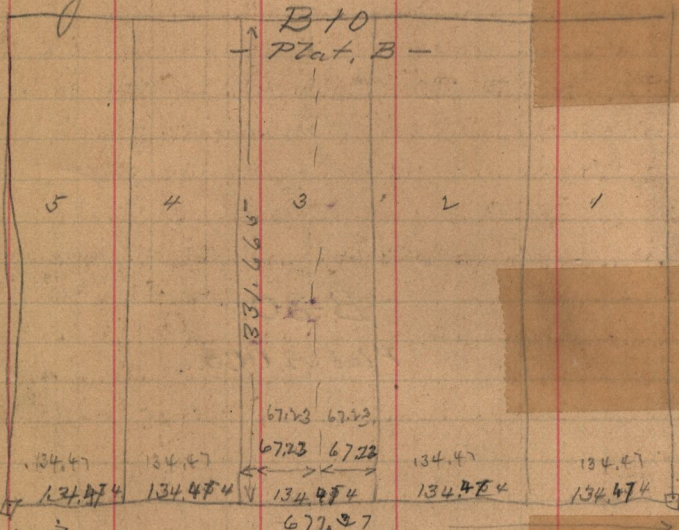 B 10
- Plat, B -
5 4 3 2 1
331.665
67.23 67.23
67.23 67.23
134.47 134.47 134.47 134.47
134.474 134.474 134.474 134.474 134.474